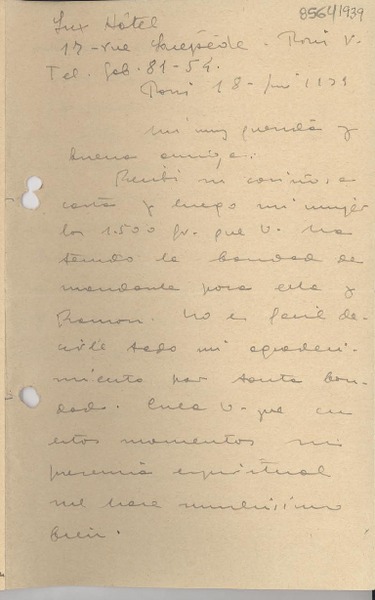 8564/1939
Lux Hôtel
17-rue Lacépède. Paris V.
Tel. Gob. 81-54.
Paris 18-
mi muy querida y
buena amiga:
Recibí su cariñosa
carta y luego mi mujer
los 1.500 fr. que V. ha
tenido la bondad de
mandarle para ella y
Ramon. No es fácil de-
cirle todo mi agradeci-
miento por tanta bon-
dad. Crea V. que en
estos momentos su
presencia espiritual
me hace muchísimo
bien.